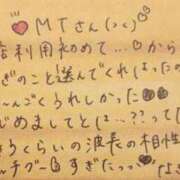 MTさん(つく)
店利用初めて…♡から
ぎのこと選んでくれはったの
〜んごくうれしかった
じめましてとは…??って
うくらいの波長の相性
ッチグーすぎたっっっ